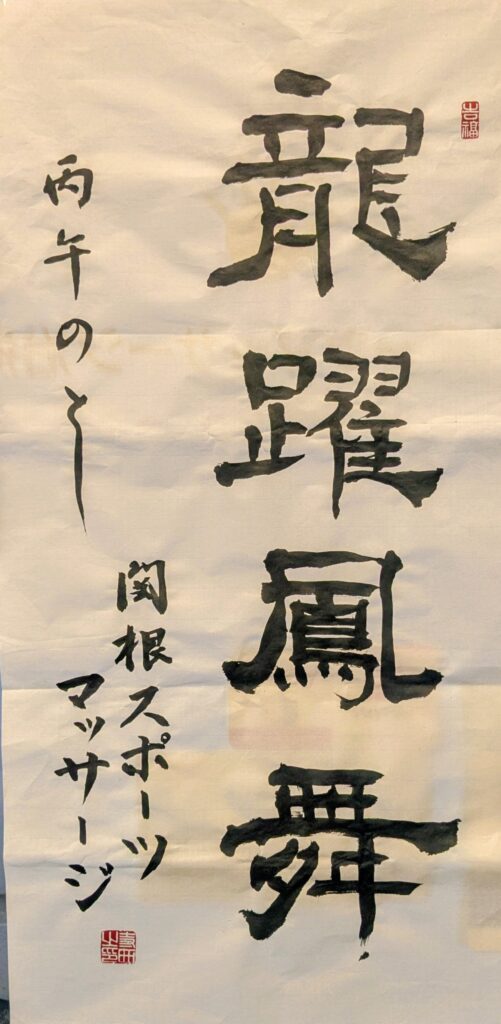 吉福
龍躍鳳舞
丙午のとし
関根スポーツ
マッサージ